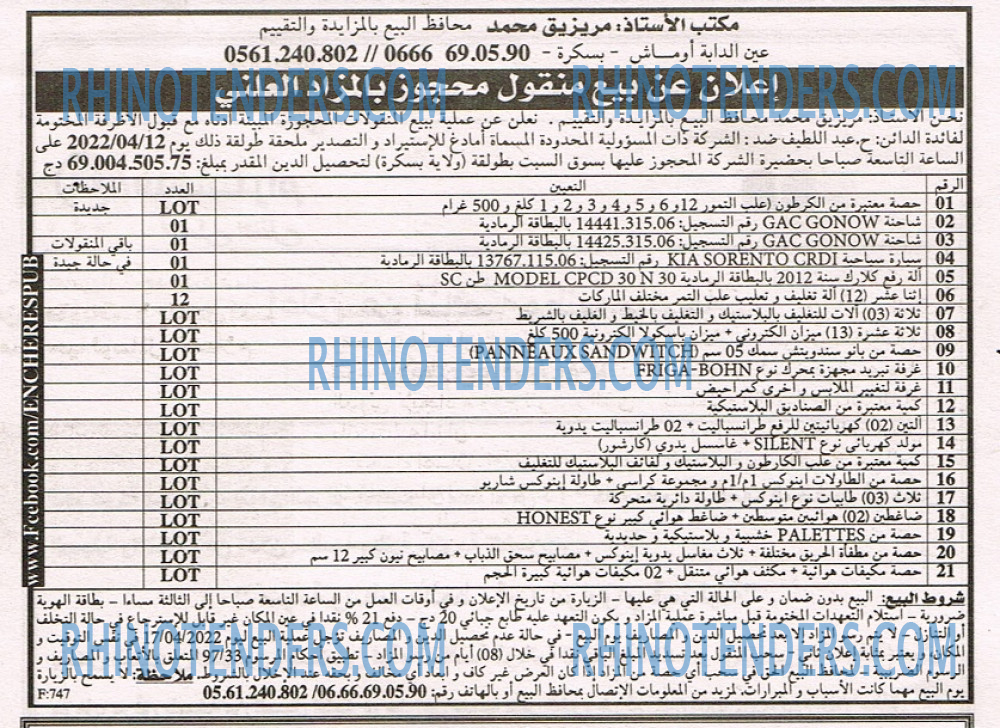 مكتب الأستاذ: مريزيق محمد محافظ البيع بالمزايدة والتقييم
عين الدابة أوماش - بسكرة - 0561.240.802 // 0666 69.05.90
إعلان عن بيع منقول محجوز بالمزاد العلني
نحن الأستاذ: مريزيق محمد محافظ البيع بالمزايدة والتقييم . نعلن عن عملية بيع المنقولات المحجوزة المبينة أدناه مع قبول الأظرفة المختومة
لفائدة الدائن: ح.عبد اللطيف ضد : الشركة ذات المسؤولية المحدودة المسماة أمادغ للإستيراد و التصدير ملحقة طولقة ذلك يوم 2022/04/12 على
الساعة التاسعة صباحا بحضيرة الشركة المحجوز عليها بسوق السبت بطولقة (ولاية بسكرة) لتحصيل الدين المقدر بمبلغ: 69.004.505.75 دج
الرقم التعيين العدد الملاحظات
01 حصة معتبرة من الكرطون (علب التمور 12و 6 و 5 و 4 و 3 و 2 و 1 كلغ و 500 غرام LOT جديدة
02 شاحنة GAC GONOW رقم التسجيل: 14441.315.06 بالبطاقة الرمادية 01
03 شاحنة GAC GONOW رقم التسجيل: 14425.315.06 بالبطاقة الرمادية 01 باقي المنقولات
04 سيارة سياحية KIA SORENTO CRDI رقم التسجيل: 13767.115.06 بالبطاقة الرمادية 01 في حالة جيدة
05 ألة رفع كلارك سنة 2012 بالبطاقة الرمادية MODEL CPCD 30 N 30 طن SC 01
06 إثنا عشر (12) ألة تغليف و تعليب علب التمر مختلف الماركات 12
07 ثلاثة (03) ألات للتغليف بالبلاستيك و التغليف بالخيط و الغليف بالشريط LOT
08 ثلاثة عشرة (13) ميزان الكتروني + ميزان باسكولا الكترونية 500 كلغ LOT
09 حصة من بانو سندويتش سمك 05 سم (PANNEAUX SANDWITCH) LOT
10 غرفة تبريد مجهزة بمحرك نوع FRIGA-BOHN LOT
11 غرفة لتغيير الملابس و أخرى كمراحيض LOT
12 كمية معتبرة من الصناديق البلاستيكية LOT
13 التين (02) كهربائيتين للرفع طرانسباليت + 02 طرانسباليت يدوية LOT
14 مولد كهربائي نوع SILENT + غاسسل يدوي (كارشور) LOT
15 كمية معتبرة من علب الكارطون و البلاستيك و لفائف البلاستيك للتغليف LOT
16 حصة من الطاولات اينوكس 1م/1م و مجموعة كراسي + طاولة إينوكس شاريو LOT
17 ثلاث (03) طابيات نوع اينوكس + طاولة دائرية متحركة LOT
18 ضاغطين (02) هوائيين متوسطين + ضاغط هوائي كبير نوع HONEST LOT
19 حصة من PALETTES خشبية و بلاستيكية و حديدية LOT
20 حصة من مطفأة الحريق مختلفة + ثلاث مغاسل يدوية إينوكس + مصابيح سحق الذباب + مصابيح نيون كبير 12 سم LOT
21 حصة مكيفات هوائية + مكثف هوائي متنقل + 02 مكيفات هوائية كبيرة الحجم LOT
شروط البيع: البيع بدون ضمان و على الحالة التي هي عليها - الزيارة من تاريخ الإعلان و في أوقات العمل من الساعة التاسعة صباحا إلى الثالثة مساءا - بطاقة الهوية
ضرورية - إستلام التعهدات المختومة قبل مباشرة عملية المزاد و يكون التعهد عليه طابع جبائي 20 دج - دفع 21 % نقدا في عين المكان غير قابلة للإسترجاع في حالة التخلف
أو التنازل - لا يتم رسو المزاد إلا بعد تحصيل الدين و المصاريف يوم البيع - في حالة عدم تحصيل الدين و المصاريف تؤجل عملية البيع ليوم 17/04/2022 في نفس التوقيت و
المكان، و يعتبر بمثابة إعلان ثاني - سحب المنقول بعد تسديد المبلغ الباقي نقدا في خلال (08) أيام من رسو المزاد - تطبيق أحكام الأمر 97/33 المتعلق
الرسوم الضريبية و لمحافظ البيع الحق في سحب أي حصة من المزاد إذا كان العرض غير كاف و إبعاد أي مخالف و يتبعه عند الإخلال بالشروط. ملاحظة: لا يسمح بالزيارة
يوم البيع مهما كانت الأسباب و المبررات. لمزيد من المعلومات الإتصال بمحافظ البيع أو بالهاتف رقم: 05.61.240.802 /06.66.69.05.90
F:747
www.Fcebook.com/ENCHERESPUB
RHINOTENDERS.COM
RHINOTENDERS.COM
RHINOTENDERS.COM
RHINOTENDERS.COM
RHINOTENDERS.COM